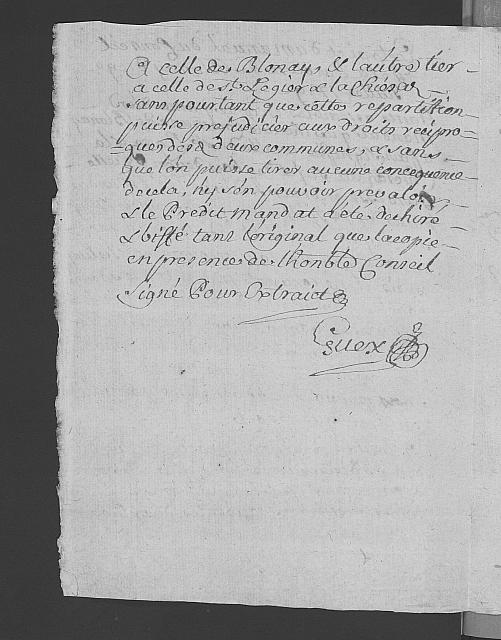 A celle de Blonay, & lautre tier –
a celle de St. Legier & la Chiesaz
sans pourtant que cette repartition
puisse prejudicier aux droits recipro=
=ques des deux communes, & sans –
que lon puisse tirer aucune concequence
de cela, ny s'en pouvoir prevaloir
& le Predit mandat a été dechiré
& biffé tant l'original que la copie –
en presence de lhonble Conseil
Signé Pour Extrait
Guex